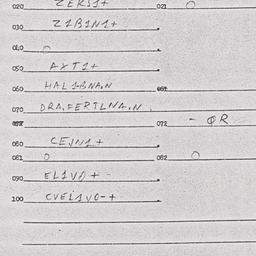 020 ZERS1+ 021 O
030 Z1B1N1+
040 O
050 AXT1+
060 HAL1BNA.N
070 DRA.FERTLNA.N
072 - ØR
080 CEJN1+
081 O 082 O
090 EL1VO+ -
100 CVEL1VO-+